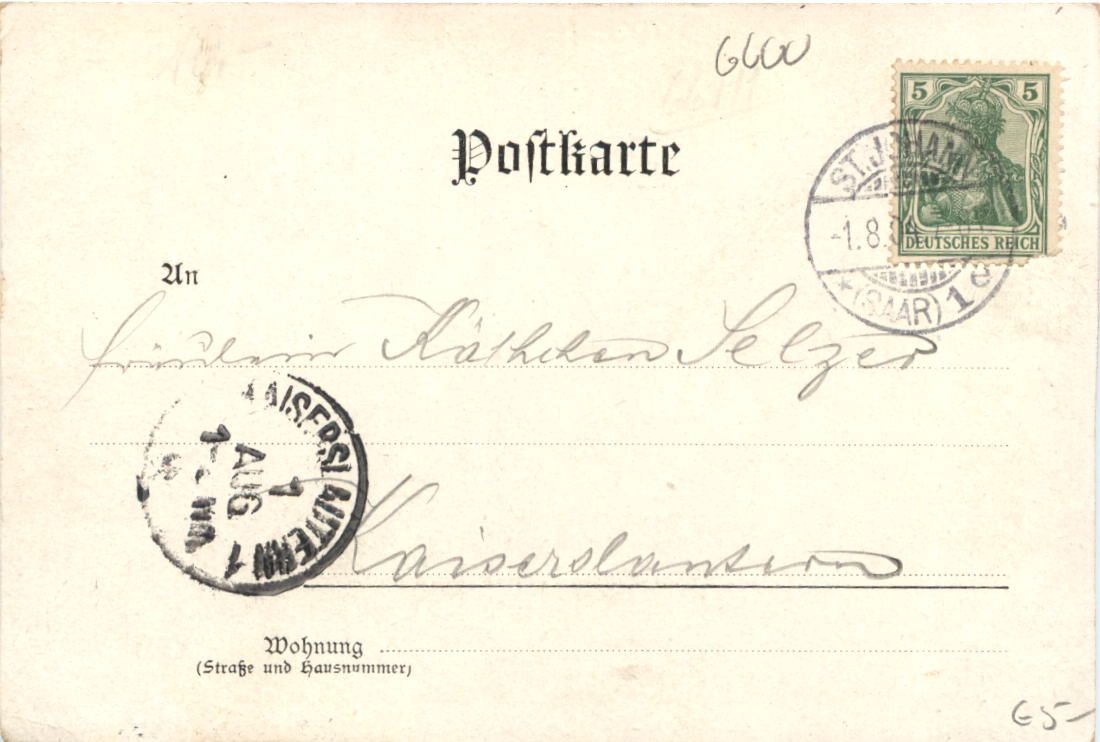 6600
5 5
DEUTSCHES REICH
ST. JOHANN
-1.8.
* (SAAR) 1 e
Postkarte
An
Fräulein Käthchen Selzer
KAISERSLAUTERN 1
1
AUG
Kaiserslautern
Wohnung
(Straße und Hausnummer)
€5-